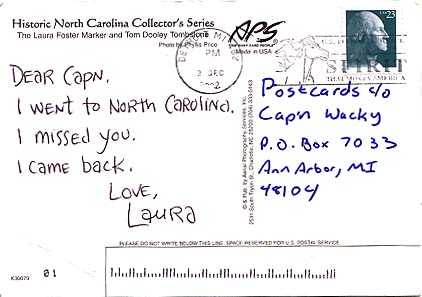 Historic North Carolina Collector's Series
The Laura Foster Marker and Tom Dooley Tombstone
Photo by Phyllis Price
APS
Made in USA
DETROIT MI
2 DEC
2002
USA
23
SPIRIT
THAT MOVES AMERICA
DEAR CAPN.
I WENT TO NORTH CAROLINA.
I MISSED YOU.
I CAME BACK.
LOVE,
LAURA
© & Pub. by Aerial Photography Services, Inc.
2511 South Tryon St., Charlotte, NC 28203 (704) 333-5143
Postcards c/o
Capn Wacky
P.O. Box 7033
Ann Arbor, MI
48104
PLEASE DO NOT WRITE BELOW THIS LINE. SPACE RESERVED FOR U.S. POSTAL SERVICE.
K30079
01